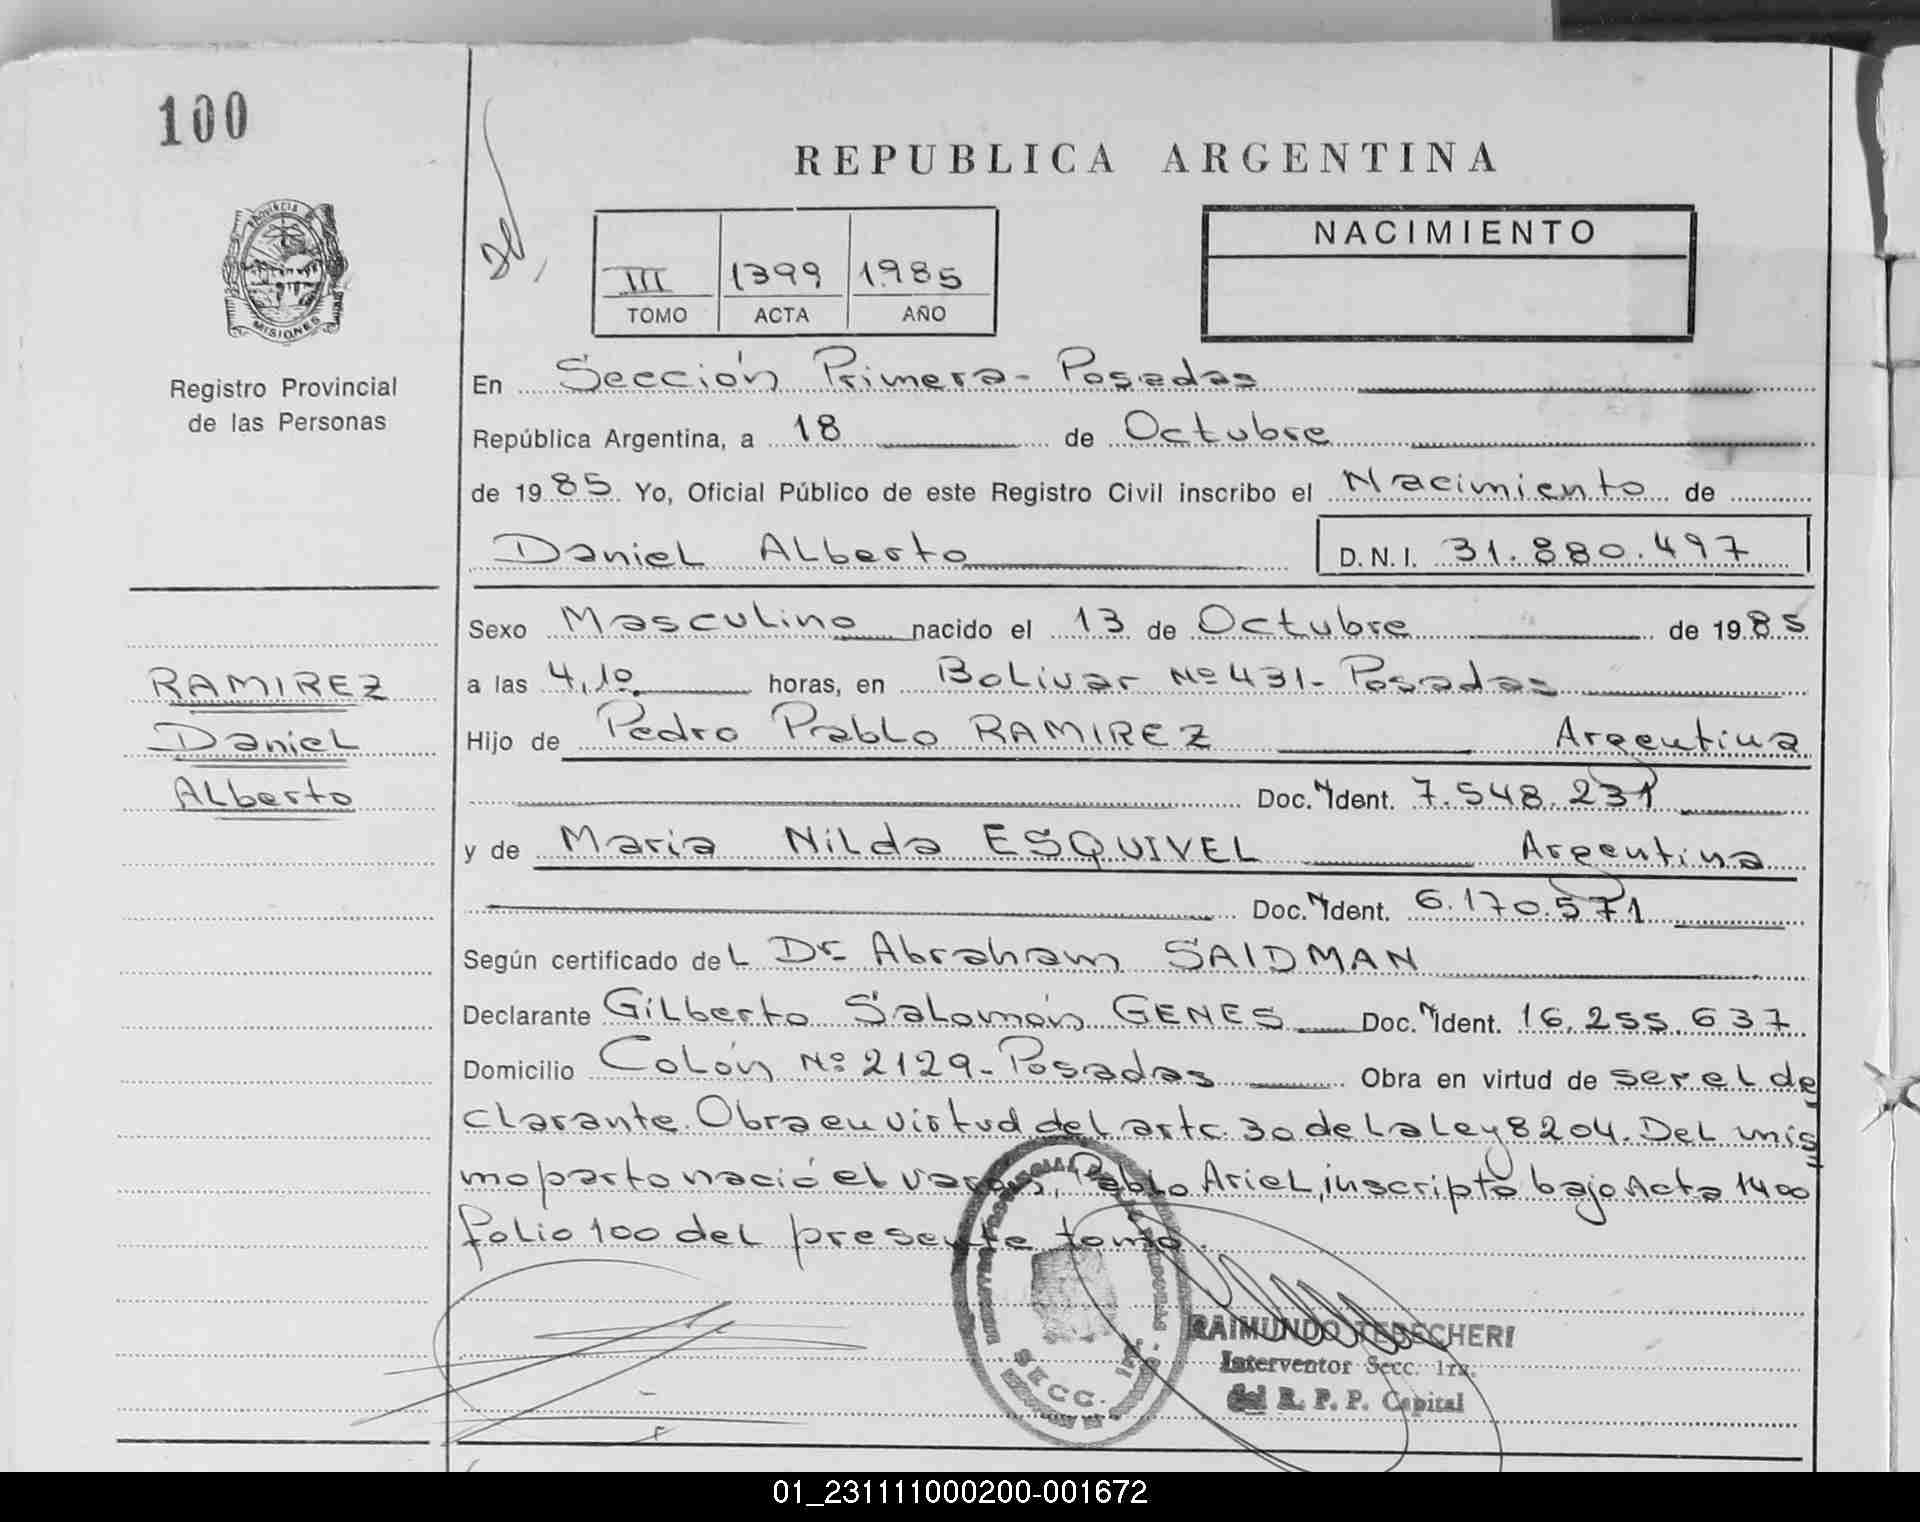 100
REPUBLICA ARGENTINA
PROVINCIA
MISIONES
Registro Provincial
de las Personas
III 1399 1985
TOMO ACTA AÑO
NACIMIENTO
En Sección Primera - Posadas
República Argentina, a 18 de Octubre
de 1985 Yo, Oficial Público de este Registro Civil inscribo el Nacimiento de
Daniel Alberto D.N.I. 31.880.497
Sexo Masculino nacido el 13 de Octubre de 1985
RAMIREZ
Daniel
Alberto
a las 4,10 horas, en Bolivar Nº 431 - Posadas
Hijo de Pedro Pablo RAMIREZ Argentina
Doc. Ident. 7.548.231
y de Maria Nilda ESQUIVEL Argentina
Doc. Ident. 6.170.571
Según certificado del Dr. Abraham SAIDMAN
Declarante Gilberto Salomón GENES Doc. Ident. 16.255.637
Domicilio Colón Nº 2129 - Posadas Obra en virtud de ser el de
clarante. Obra en virtud del artc. 30 de la Ley 8204. Del mis
mo parto nació el varón, Pablo Ariel, inscripto bajo Acta 1400
folio 100 del presente tomo.
SECC. 1ra.
RAIMUNDO TEBECHERI
Interventor Secc. 1ra.
del R. P. P. Capital
01_231111000200-001672